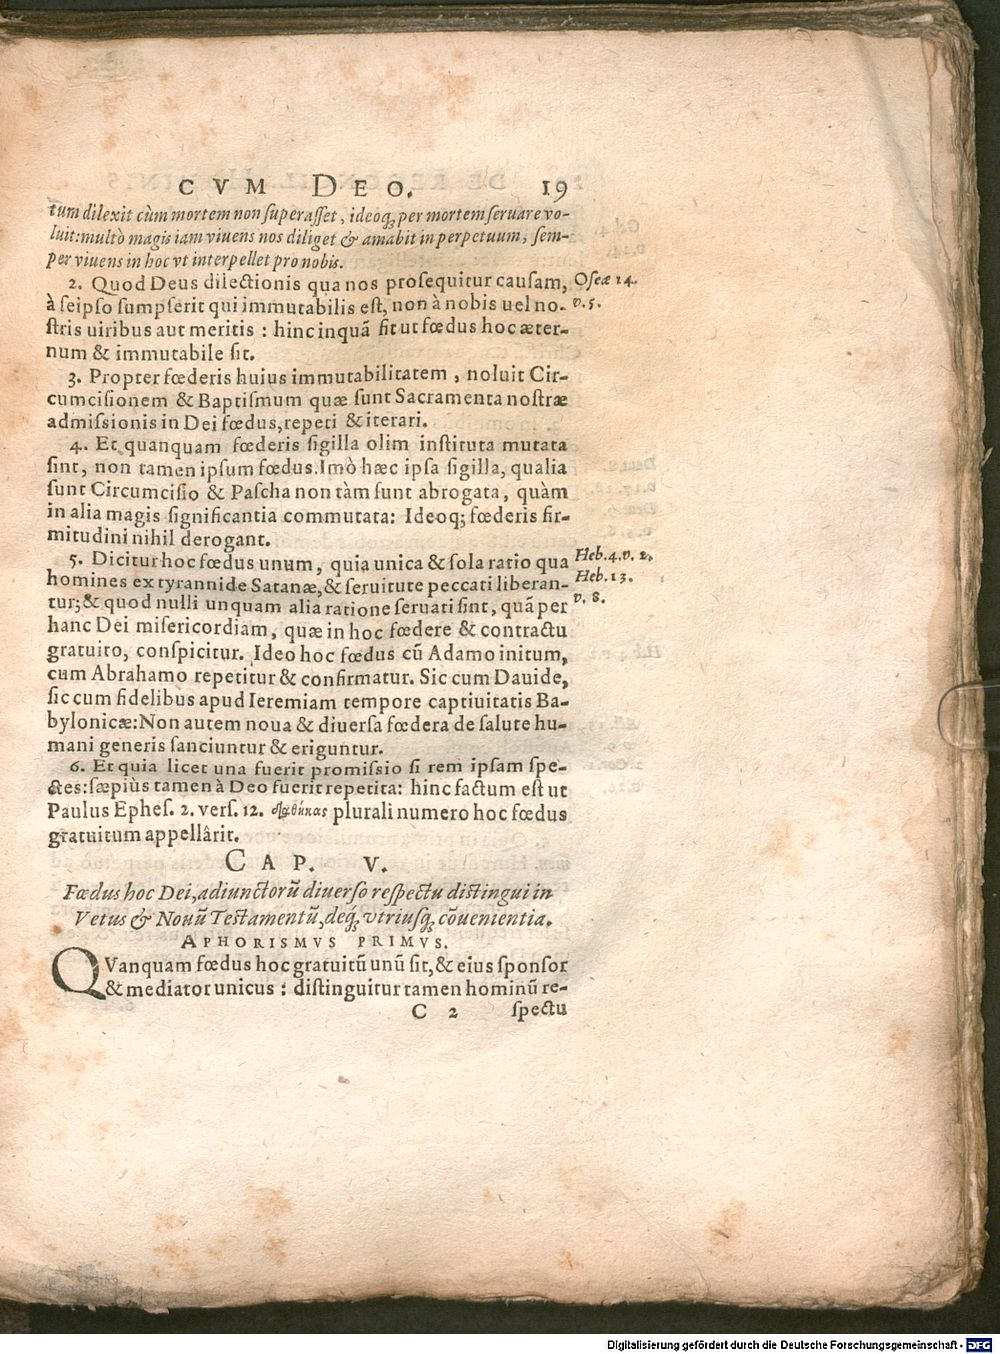 CVM DEO. 19
tum dilexit cùm mortem non superasset, ideoq́; per mortem seruare vo-
luit: multò magis iam viuens nos diliget & amabit in perpetuum, sem-
per viuens in hoc vt interpellet pro nobis.
2. Quod Deus dilectionis qua nos prosequitur causam, Oseæ 14.
à seipso sumpserit qui immutabilis est, non à nobis uel no- v. 5.
stris uiribus aut meritis : hinc inquā sit ut fœdus hoc æter-
num & immutabile sit.
3. Propter fœderis huius immutabilitatem , noluit Cir-
cumcisionem & Baptismum quæ sunt Sacramenta nostræ
admissionis in Dei fœdus, repeti & iterari.
4. Et quanquam fœderis sigilla olim instituta mutata
sint, non tamen ipsum fœdus. Imò hæc ipsa sigilla, qualia
sunt Circumcisio & Pascha non tàm sunt abrogata, quàm
in alia magis significantia commutata: Ideoq; fœderis fir-
mitudini nihil derogant.
5. Dicitur hoc fœdus unum, quia unica & sola ratio qua Heb. 4. v. 2.
homines ex tyrannide Satanæ, & seruitute peccati liberan- Heb. 13.
tur; & quod nulli unquam alia ratione seruati sint, quā per v. 8.
hanc Dei misericordiam, quæ in hoc fœdere & contractu
gratuito, conspicitur. Ideo hoc fœdus cū Adamo initum,
cum Abrahamo repetitur & confirmatur. Sic cum Dauide,
sic cum fidelibus apud Ieremiam tempore captiuitatis Ba-
bylonicæ: Non autem noua & diuersa fœdera de salute hu-
mani generis sanciuntur & eriguntur.
6. Et quia licet una fuerit promissio si rem ipsam spe-
ctes: sæpiùs tamen à Deo fuerit repetita: hinc factum est ut
Paulus Ephes. 2. vers. 12. διαθήκας plurali numero hoc fœdus
gratuitum appellârit.
CAP. V.
Fœdus hoc Dei, adiunctorū diuerso respectu distingui in
Vetus & Nouū Testamentū, deq́; vtriusq́; cōuenientia.
APHORISMVS PRIMVS.
QVanquam fœdus hoc gratuitū unū sit, & eius sponsor
& mediator unicus : distinguitur tamen hominū re-
C 2 spectu
Digitalisierung gefördert durch die Deutsche Forschungsgemeinschaft - DFG